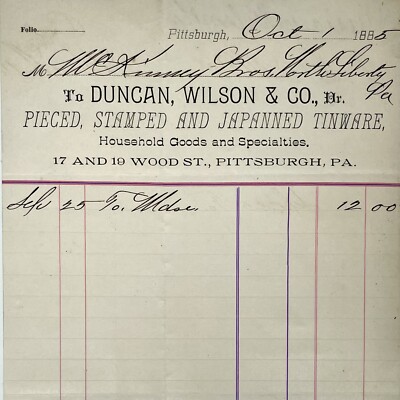 Folio
Pittsburgh, Oct 1 1885
M McKinney Bros North Liberty Pa
To DUNCAN, WILSON & CO., Dr.
PIECED, STAMPED AND JAPANNED TINWARE,
Household Goods and Specialties.
17 AND 19 WOOD ST., PITTSBURGH, PA.
Sep 25 To Mdse 12 00